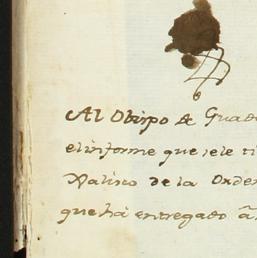 Al Obispo de Guad
el informe que se le
Xalisco de la Orden
que há entregado á